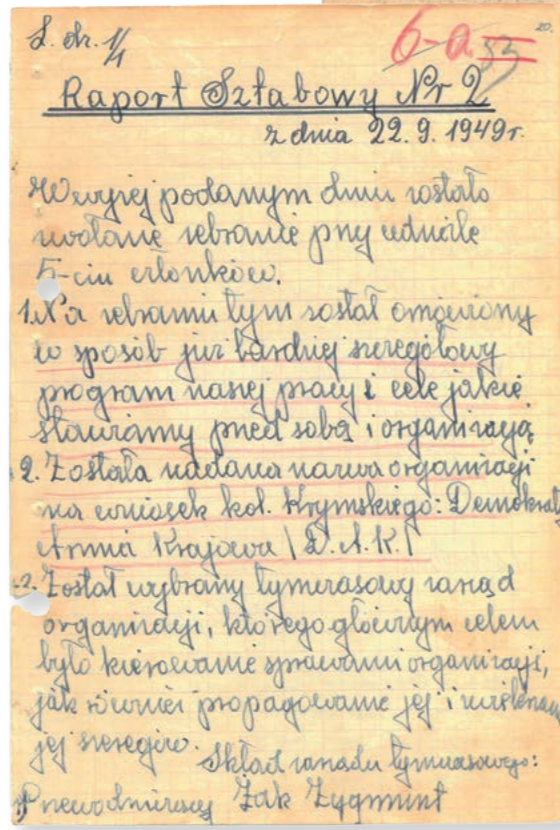 L. dz. 1/1
6-a 52
20.
Raport Sztabowy Nr 2
z dnia 22. 9. 1949 r.
W wyżej podanym dniu zostało
zwołane zebranie przy udziale
5-ciu członków.
1. Na zebraniu tym został omówiony
w sposób już bardziej szczegółowy
program naszej pracy i cele jakie
stawiamy przed sobą i organizacją
2. Została nadana nazwa organizacji
na wniosek kol. Krymskiego: Demokrat.
Armia Krajowa /D.A.K./
2. Został wybrany tymczasowy zarząd
organizacji, którego głównym celem
było kierowanie sprawami organizacji,
jak również propagowanie jej i
jej szeregów.
Skład zarządu tymczasowego:
1) Przewodniczący Żak Zygmunt